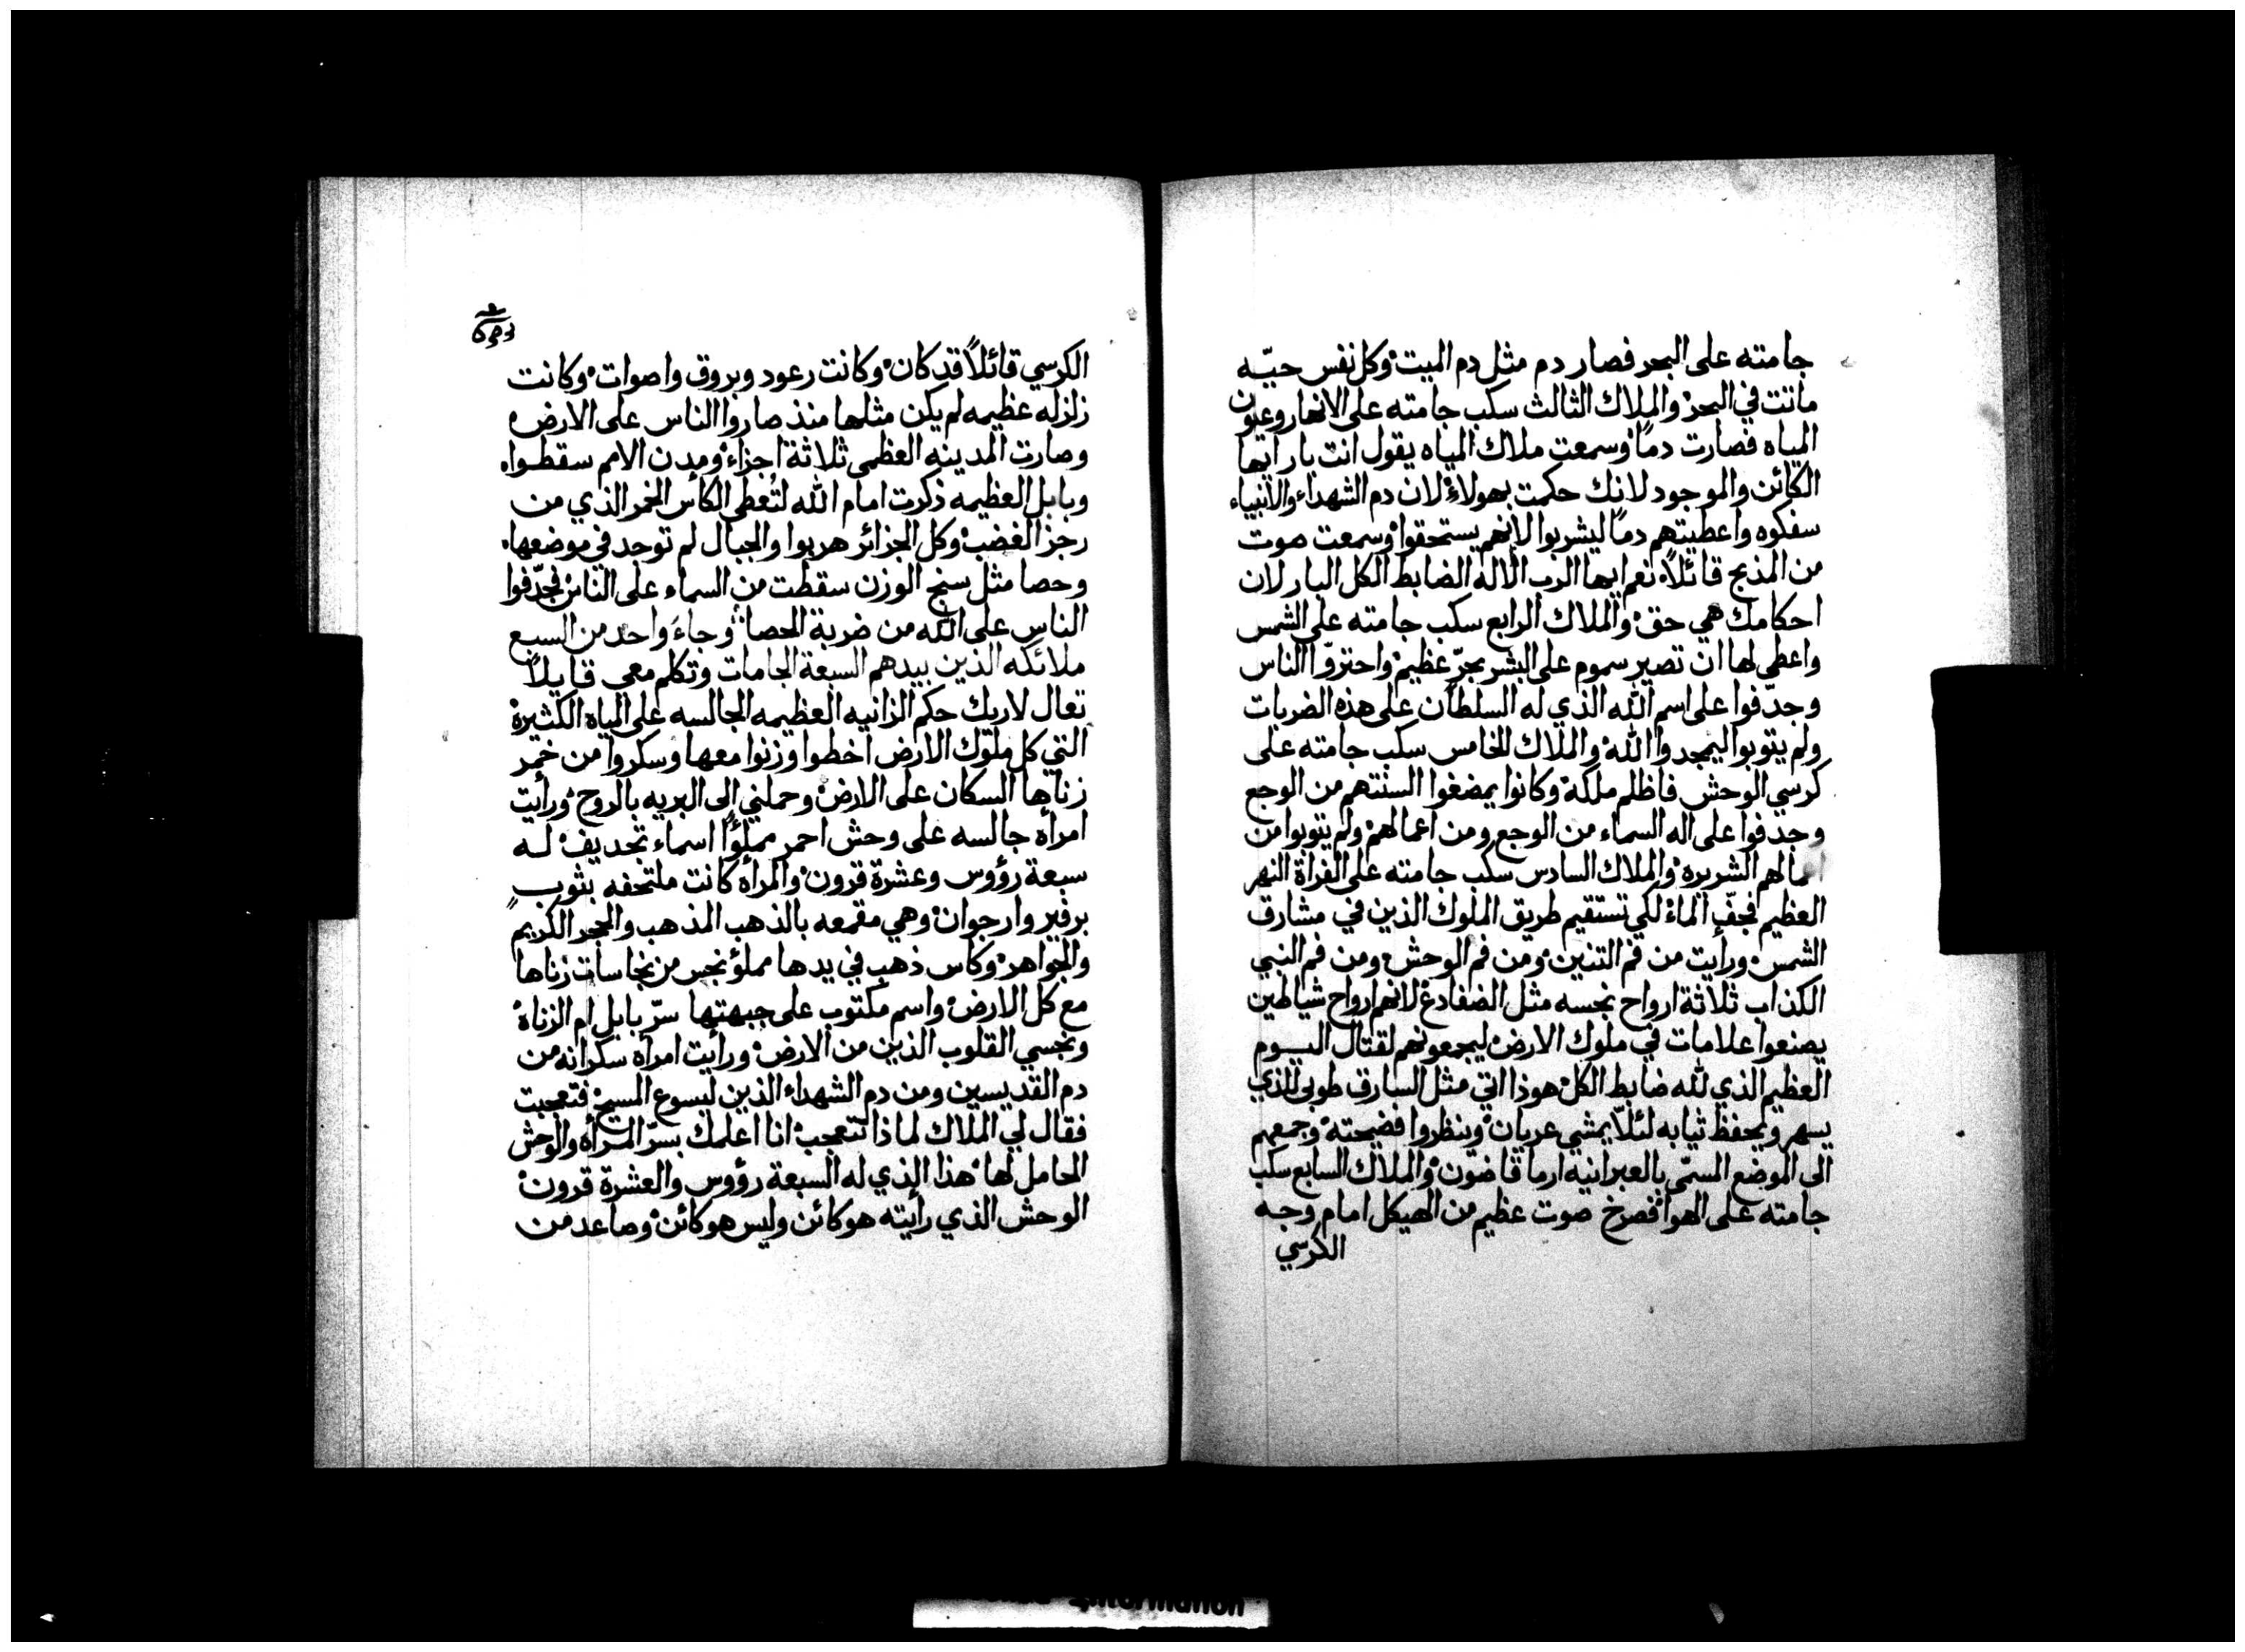 جامته على البحر فصار دم مثل دم الميت وكل نفس حيّه
ماتت في البحر والملاك الثالث سكب جامته على الانهار وعيون
المياه فصارت دمًا وسمعت ملاك المياه يقول انت بار ايها
الكائن والموجود لانك حكمت بهولاء لان دم الشهداء والانبياء
سفكوه واعطيتهم دمًا ليشربوا لانهم يستحقوا وسمعت صوت
من المذبح قائلًا نعم ايها الرب الاله الضابط الكل البار لان
احكامك هي حق والملاك الرابع سكب جامته على الشمس
واعطي لها ان تصير سموم على البشر بحرّ عظيم واحترقوا الناس
وجدّفوا على اسم الله الذي له السلطان على هذه الضربات
ولم يتوبوا ليمجدوا الله والملاك الخامس سكب جامته على
كرسي الوحش فاظلم ملكه وكانوا يمضغوا السنتهم من الوجع
وجدفوا على اله السماء من الوجع ومن اعمالهم ولم يتوبوا من
اعمالهم الشريره والملاك السادس سكب جامته على الفراة النهر
العظيم فجفّ الماء لكي تستقيم طريق الملوك الذين في مشارق
الشمس ورأيت من فم التنين ومن فم الوحش ومن فم النبي
الكذاب ثلاثة ارواح نجسه مثل الضفادع لانهم ارواح شياطين
يصنعوا علامات في ملوك الارض ليجمعونهم لقتال اليوم
العظيم الذي لله ضابط الكل هوذا اتي مثل السارق طوبى للذي
يسهر ويحفظ ثيابه لئلّا يمشي عريان وينظروا فضيحته وجمعهم
الى الموضع المسمّى بالعبرانيه ارماقاضون والملاك السابع سكب
جامته على الهوا فصرخ صوت عظيم من الهيكل امام وجه
الكرسي
الكرسي قائلًا قد كان وكانت رعود وبروق واصوات وكانت
زلزله عظيمه لم يكن مثلها منذ صاروا الناس على الارض
وصارت المدينه العظمى ثلاثة اجزاء ومدن الامم سقطوا
وبابل العظيمه ذكرت امام الله لتُعطى الكأس الخمر الذي من
رجز الغضب وكل الجزائر هربوا والجبال لم توجد في موضعها
وحصا مثل سنج الوزن سقطت من السماء على الناس فجدّفوا
الناس على الله من ضربة الحصا وجاء واحد من السبع
ملائكه الذين بيدهم السبعة الجامات وتكلم معي قايلًا
تعال لاريك حكم الزانيه العظيمه الجالسه على المياه الكثيرة
التي كل ملوك الارض اخطوا وزنوا معها وسكروا من خمر
زناها السكان على الارض وحملني الى البريه بالروح ورأيت
امرأة جالسه على وحش احمر مملؤًا اسماء تجديف له
سبعة رؤوس وعشرة قرون والمرأة كانت ملتحفه بثوب
برفير وارجوان وهي مقمعه بالذهب المذهب والحجر الكريم
والجواهر وكاس ذهب في يدها مملؤ نجس من نجاسات زناها
مع كل الارض واسم مكتوب على جبهتها سرّ بابل ام الزناة
ونجسي القلوب الذين من الارض ورأيت امرأة سكرانه من
دم القديسين ومن دم الشهداء الذين ليسوع المسيح فتعجبت
فقال لي الملاك لماذا تتعجب انا اعلمك بسرّ المرأة والوحش
الحامل لها هذا الذي له السبعة رؤوس والعشرة قرون
الوحش الذي رأيته هو كائن وليس هو كائن وصاعد من